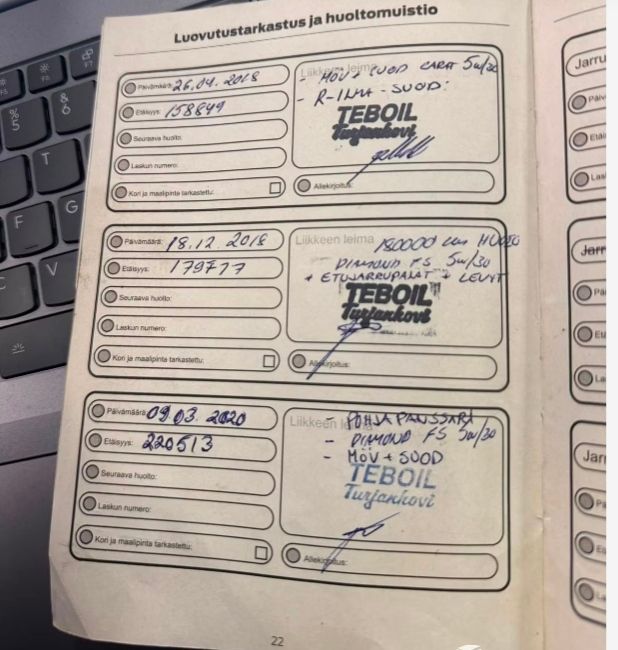 Luovutustarkastus ja huoltomuistio
Päivämäärä: 26.04.2018
Etäisyys: 158849
Seuraava huolto:
Laskun numero:
Kori ja maalipinta tarkastettu:
Liikkeen leima
- MÖV + SUOD CARAT 5w/30
- R-ILMA-SUOD.
TEBOIL
Turjankovi
Allekirjoitus:
Päivämäärä: 18.12.2018
Etäisyys: 179777
Seuraava huolto:
Laskun numero:
Kori ja maalipinta tarkastettu:
Liikkeen leima
180000 km HUOLTO
DIAMOND FS 5w/30
+ ETUJARRUPALAT + LEVYT
TEBOIL
Turjankovi
Allekirjoitus:
Päivämäärä: 09.03.2020
Etäisyys: 220513
Seuraava huolto:
Laskun numero:
Kori ja maalipinta tarkastettu:
Liikkeen leima
- POHJAPANSSARI
- DIAMOND FS 5w/30
- MÖV + SUOD
TEBOIL
Turjankovi
Allekirjoitus:
22
Jarru
Päiv
Etäi
Las
Jarr
Pä
Et
La
Jar
Pa
Ea
La
F5
F6
F7
%
5
&
6
T
F
G
C
V